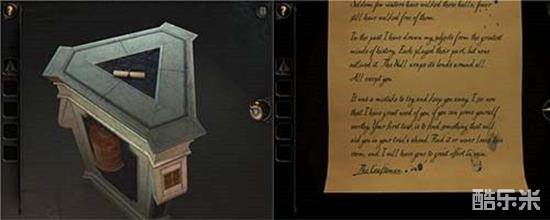 ?
?
Seldom few visitors have walked these halls, fewer
still have walked free of them.
In the past I have drawn my subjects from the greatest
minds of history. Each played their part, but none
outlived it. The Null wraps its hands around all.
All except you.
It was a mistake to try and keep you away, I see now
that I have great need of you, if you can prove yourself
worthy. Your first task is to find something that will
aid you in your trials ahead. Find it or never leave this
room, and I will have gone to great effort in vain.
The Craftsman
酷乐米